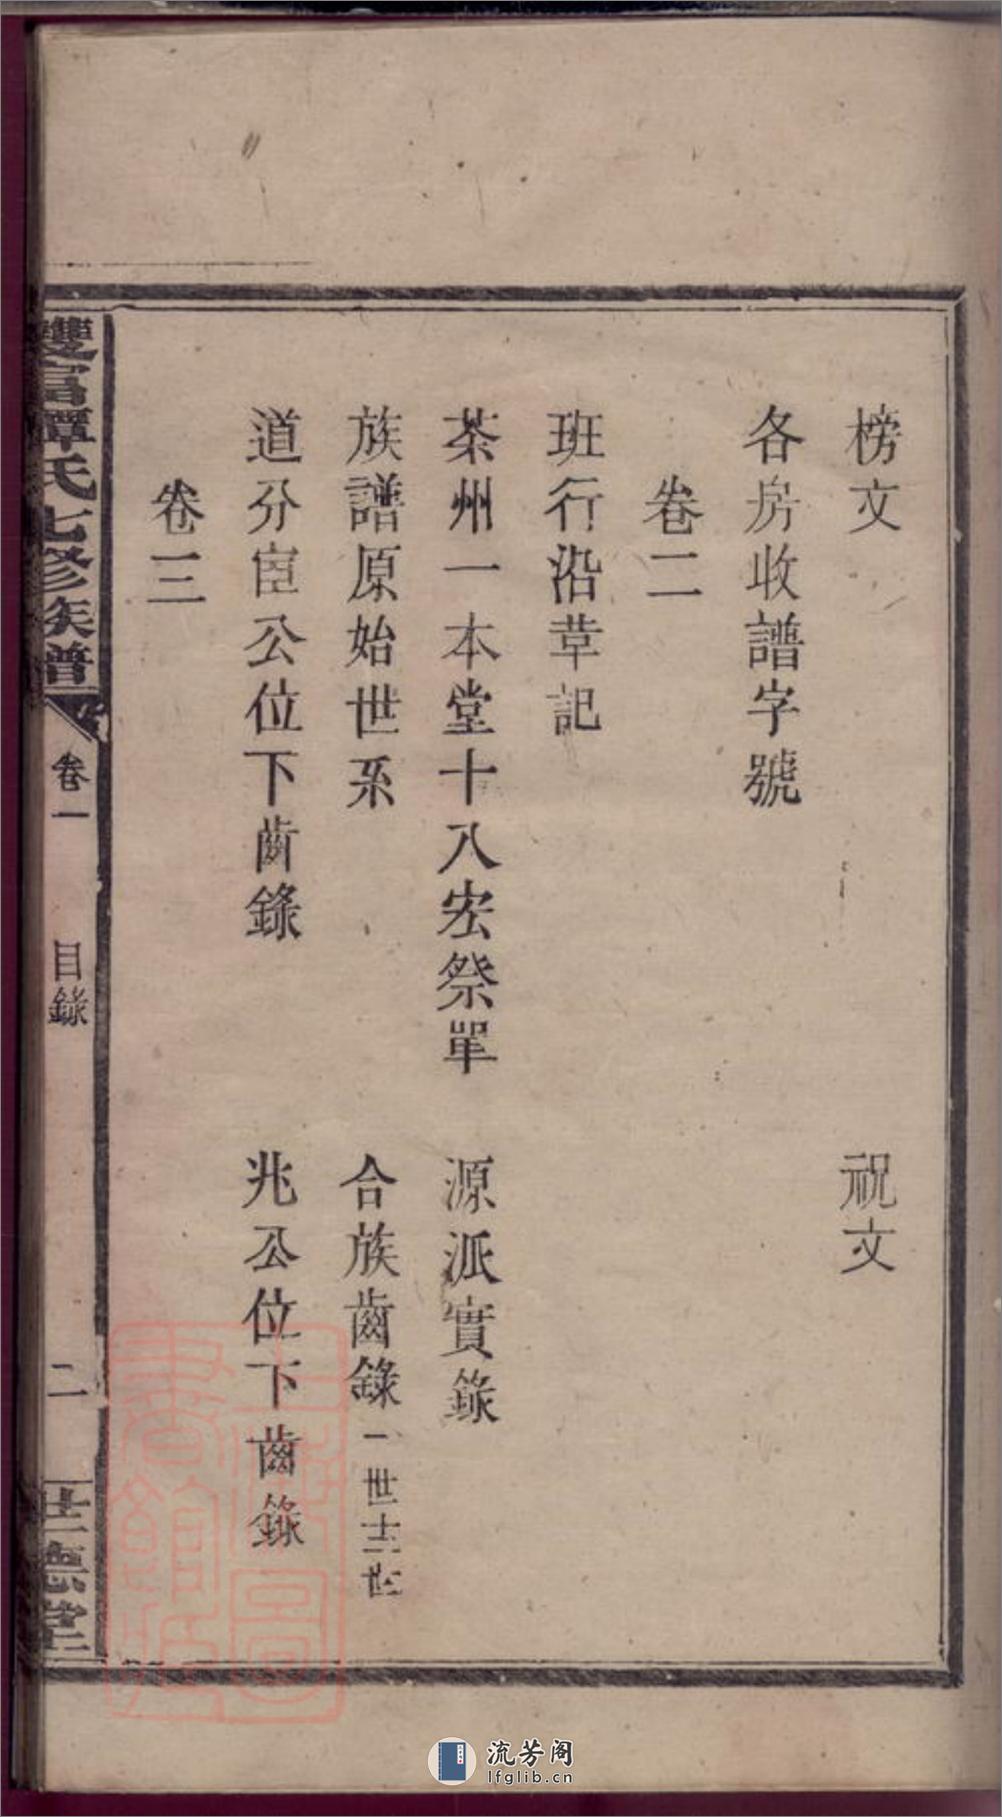 榜文　祝文
各房收譜字號
卷二
班行沿革記
茶州一本堂十八宏祭單　源派實錄
族譜原始世系　合族齒錄一世士二世
道分宦公位下齒錄　兆公位下齒錄
卷三
雙官譚氏七修族譜　卷一　目錄　二　世德堂
流芳阁
lfglib.cn